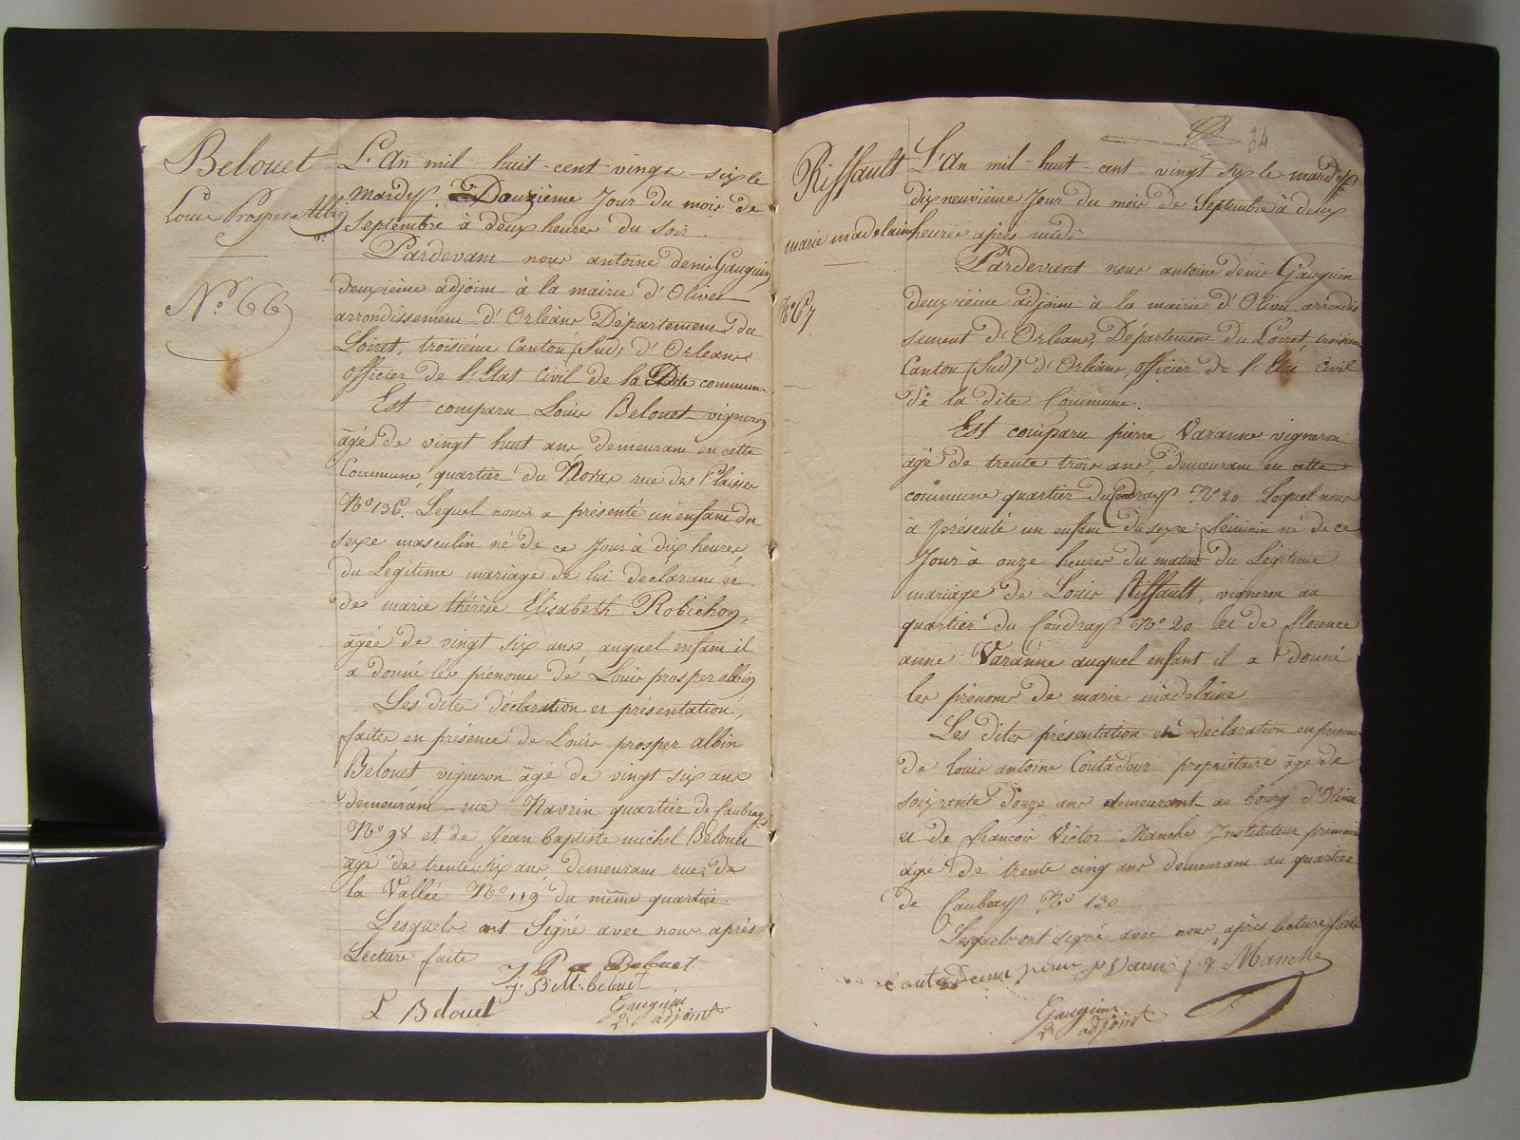 Belouet
Louis Prosper Albin
N.° 66
L'An mil huit-cent-vingt-six le
mardy Douzième Jour du mois de
Septembre à deux heures du soir
Pardevant nous antoine denis Gauguin
deuxième adjoint à la mairie d'Olivet
arrondissement d'Orléans Département du
Loiret, troisième Canton (Sud) d'Orléans
officier de l'Etat Civil de la Dite commune
Est comparu Louis Belouet vigneron
âgé de vingt huit ans demeurant en cette
Commune, quartier du Nord rue des Plaisse
N° 136. Lequel nous a présenté un enfant du
sexe masculin né de ce Jour à dix heures
du Légitime mariage de lui déclarant et
de marie thérèse Elisabeth Robichon,
âgée de vingt six ans auquel enfant il
a donné les prénoms de Louis prosper albin
Les dites déclaration et présentation,
faites en présence de Louis prosper albin
Belouet vigneron âgé de vingt six ans
demeurant rue quartier de Caubray
N° 98 et de Jean baptiste michel Belouet
âgé de trente six ans demeurant rue de
la Vallée N° 119 du même quartier.
Lesquels ont Signé avec nous après
Lecture faite
J P a Belouet
J B M. belouet
L Belouet
Gauguin
adjoint
34
Riffault
marie madelaine
N° 67
L'An mil-huit-cent vingt six le mardy
dix neuvième Jour du mois de Septembre à deux
heures après midi
Pardevant nous antoine denis Gauguin
deuxième adjoint à la mairie d'Olivet arrondis
sement d'Orléans, Département du Loiret troisième
Canton (Sud) d'Orléans, officier de l'Etat Civil
de la dite Commune.
Est comparu pierre Varanne vigneron
âgé de trente trois ans, demeurant en cette
commune quartier du Coudray N° 20 Lequel nous
à présenté un enfant du sexe féminin né de ce
Jour à onze heures du matin du Légitime
mariage de Louis Riffault, vigneron au
quartier du Coudray N° 20 et de florence
anne Varanne auquel enfant il a donné
les prénoms de marie madelaine
Les dites présentation et déclaration en présence
de Louis antoine Coutadeur propriétaire âgé de
soixante douze ans demeurant au bourg d'Olivet
et de françois Victor Manche Instituteur primaire
âgé de trente cinq ans demeurant au quartier
de Caubray N° 130
Lesquels ont signé avec nous après lecture faite
Manche
Gauguin
adjoint